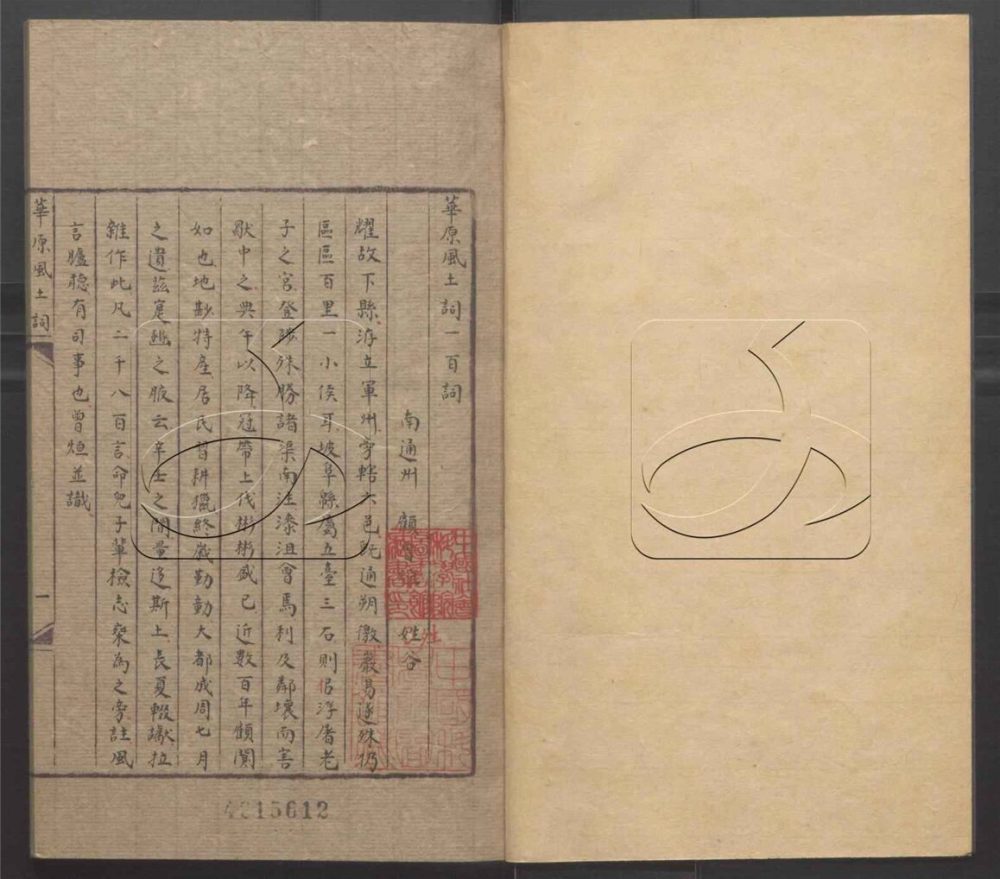 華原風土詞一百詞
南通州 顧曾烜 姓谷
耀故下縣游立軍州旁轄六邑既通朔徼嚴易遂殊抑
區區百里一小侯耳坡阜縣屬五臺三石則侶浮屠老
子之宮登眺殊勝諸渠南注漆沮會焉利及鄰壤而害
中之典午以降冠帶上代彬彬盛已近數百年顧闃
如也地尠特產居民習耕獵終歲勤動大都成周七月
之遺茲之云辛壬之間量遙斯土長夏輟讞拉
雜作此凡二千八百言命兒子輩檢志乘為之旁註風
言臚聽有司事也曾烜並識
華原風土詞
一
4215612